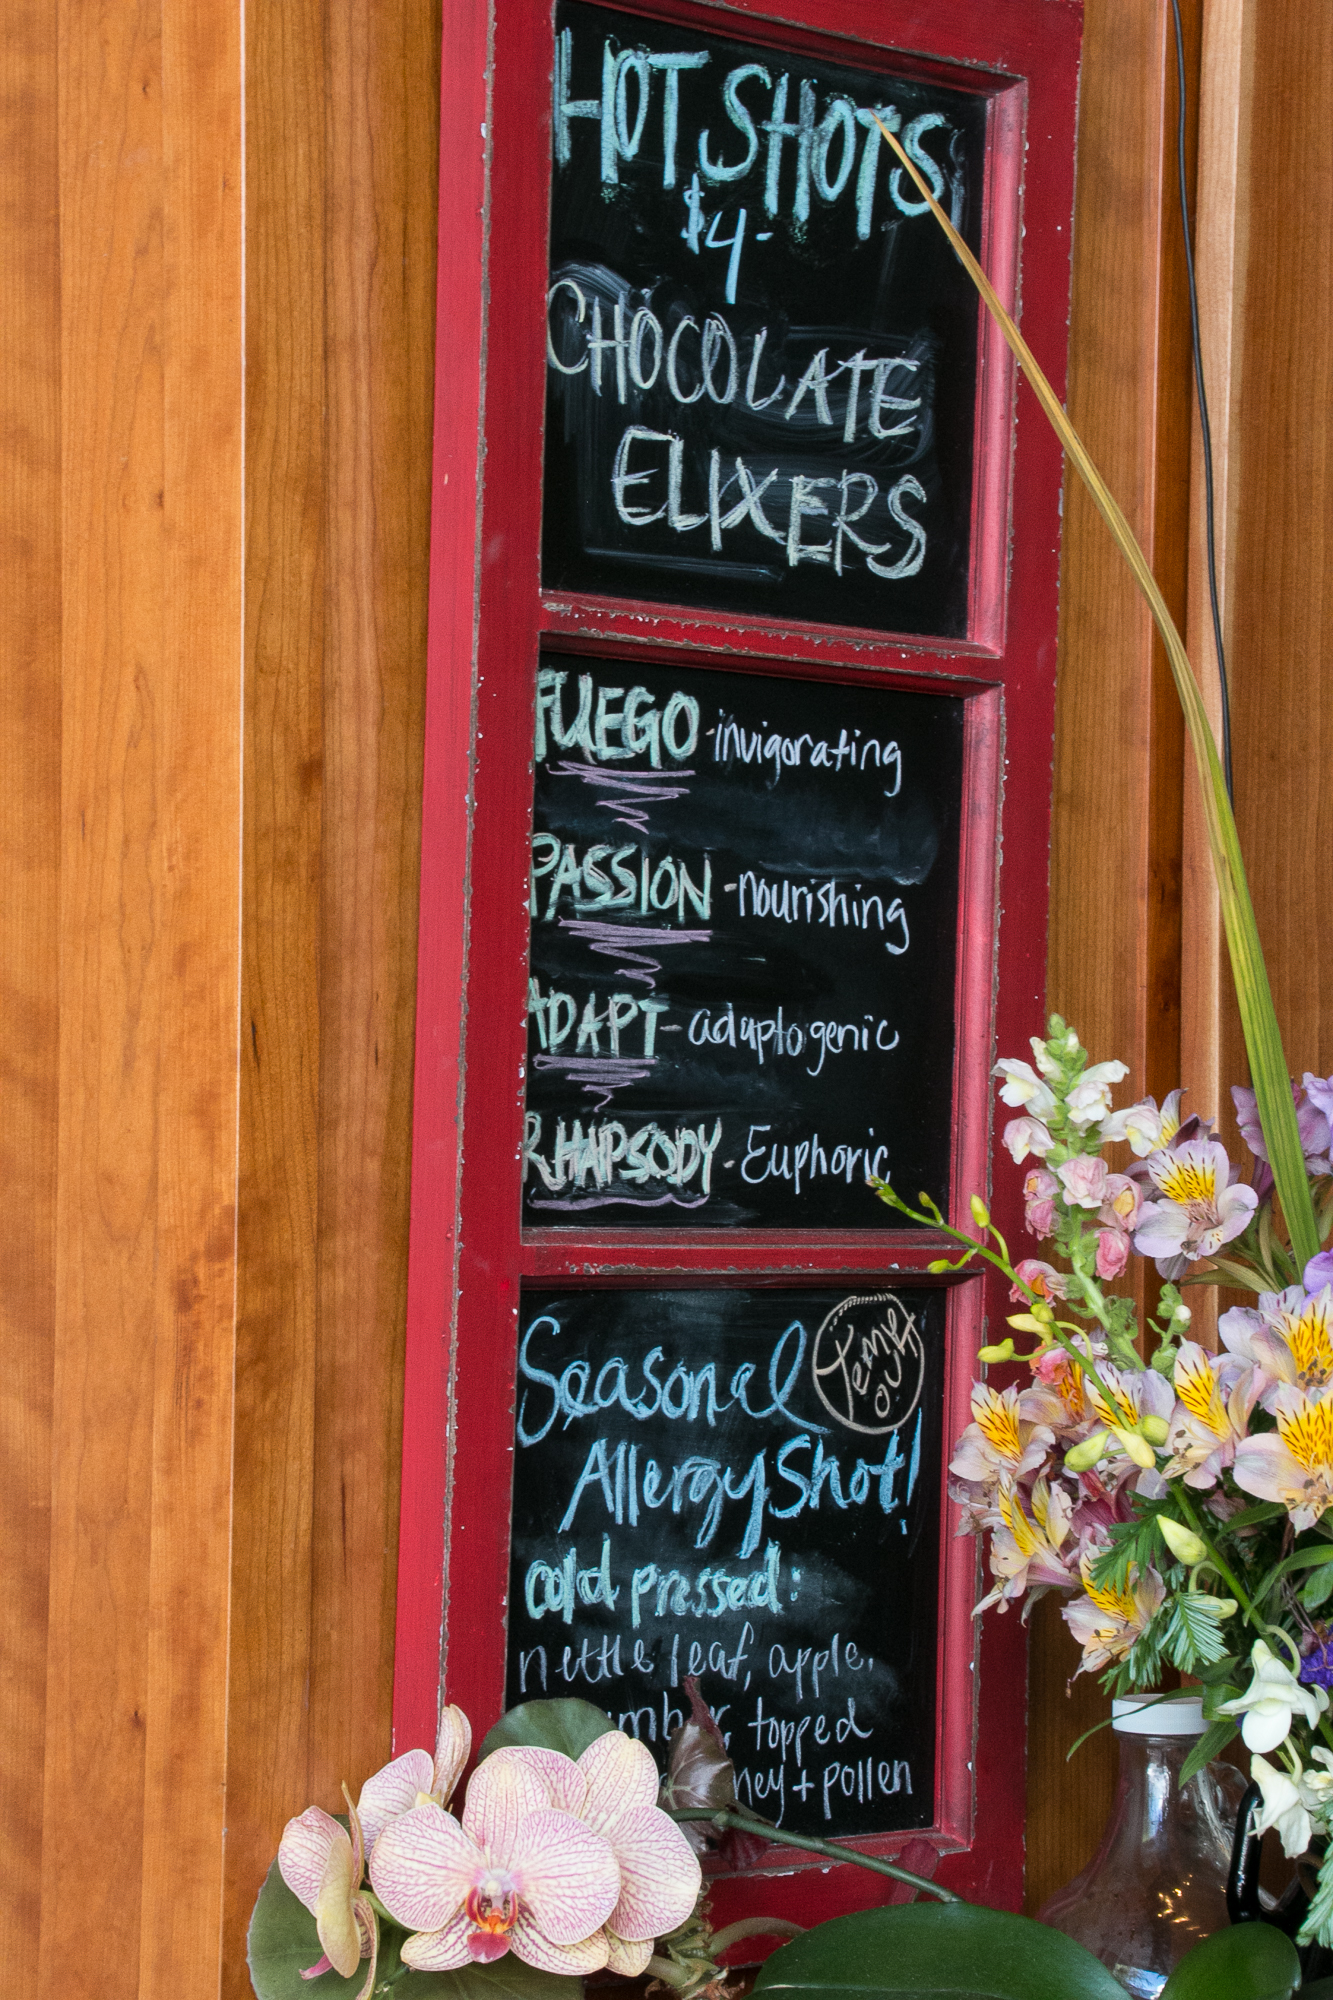 HOT SHOTS
$4-
CHOCOLATE
ELIXERS
FUEGO - invigorating
PASSION - nourishing
ADAPT - adaptogenic
RHAPSODY - Euphoric
Seasonal
Temp out
Allergy Shot!
cold pressed:
nettle leaf, apple,
topped
+ pollen